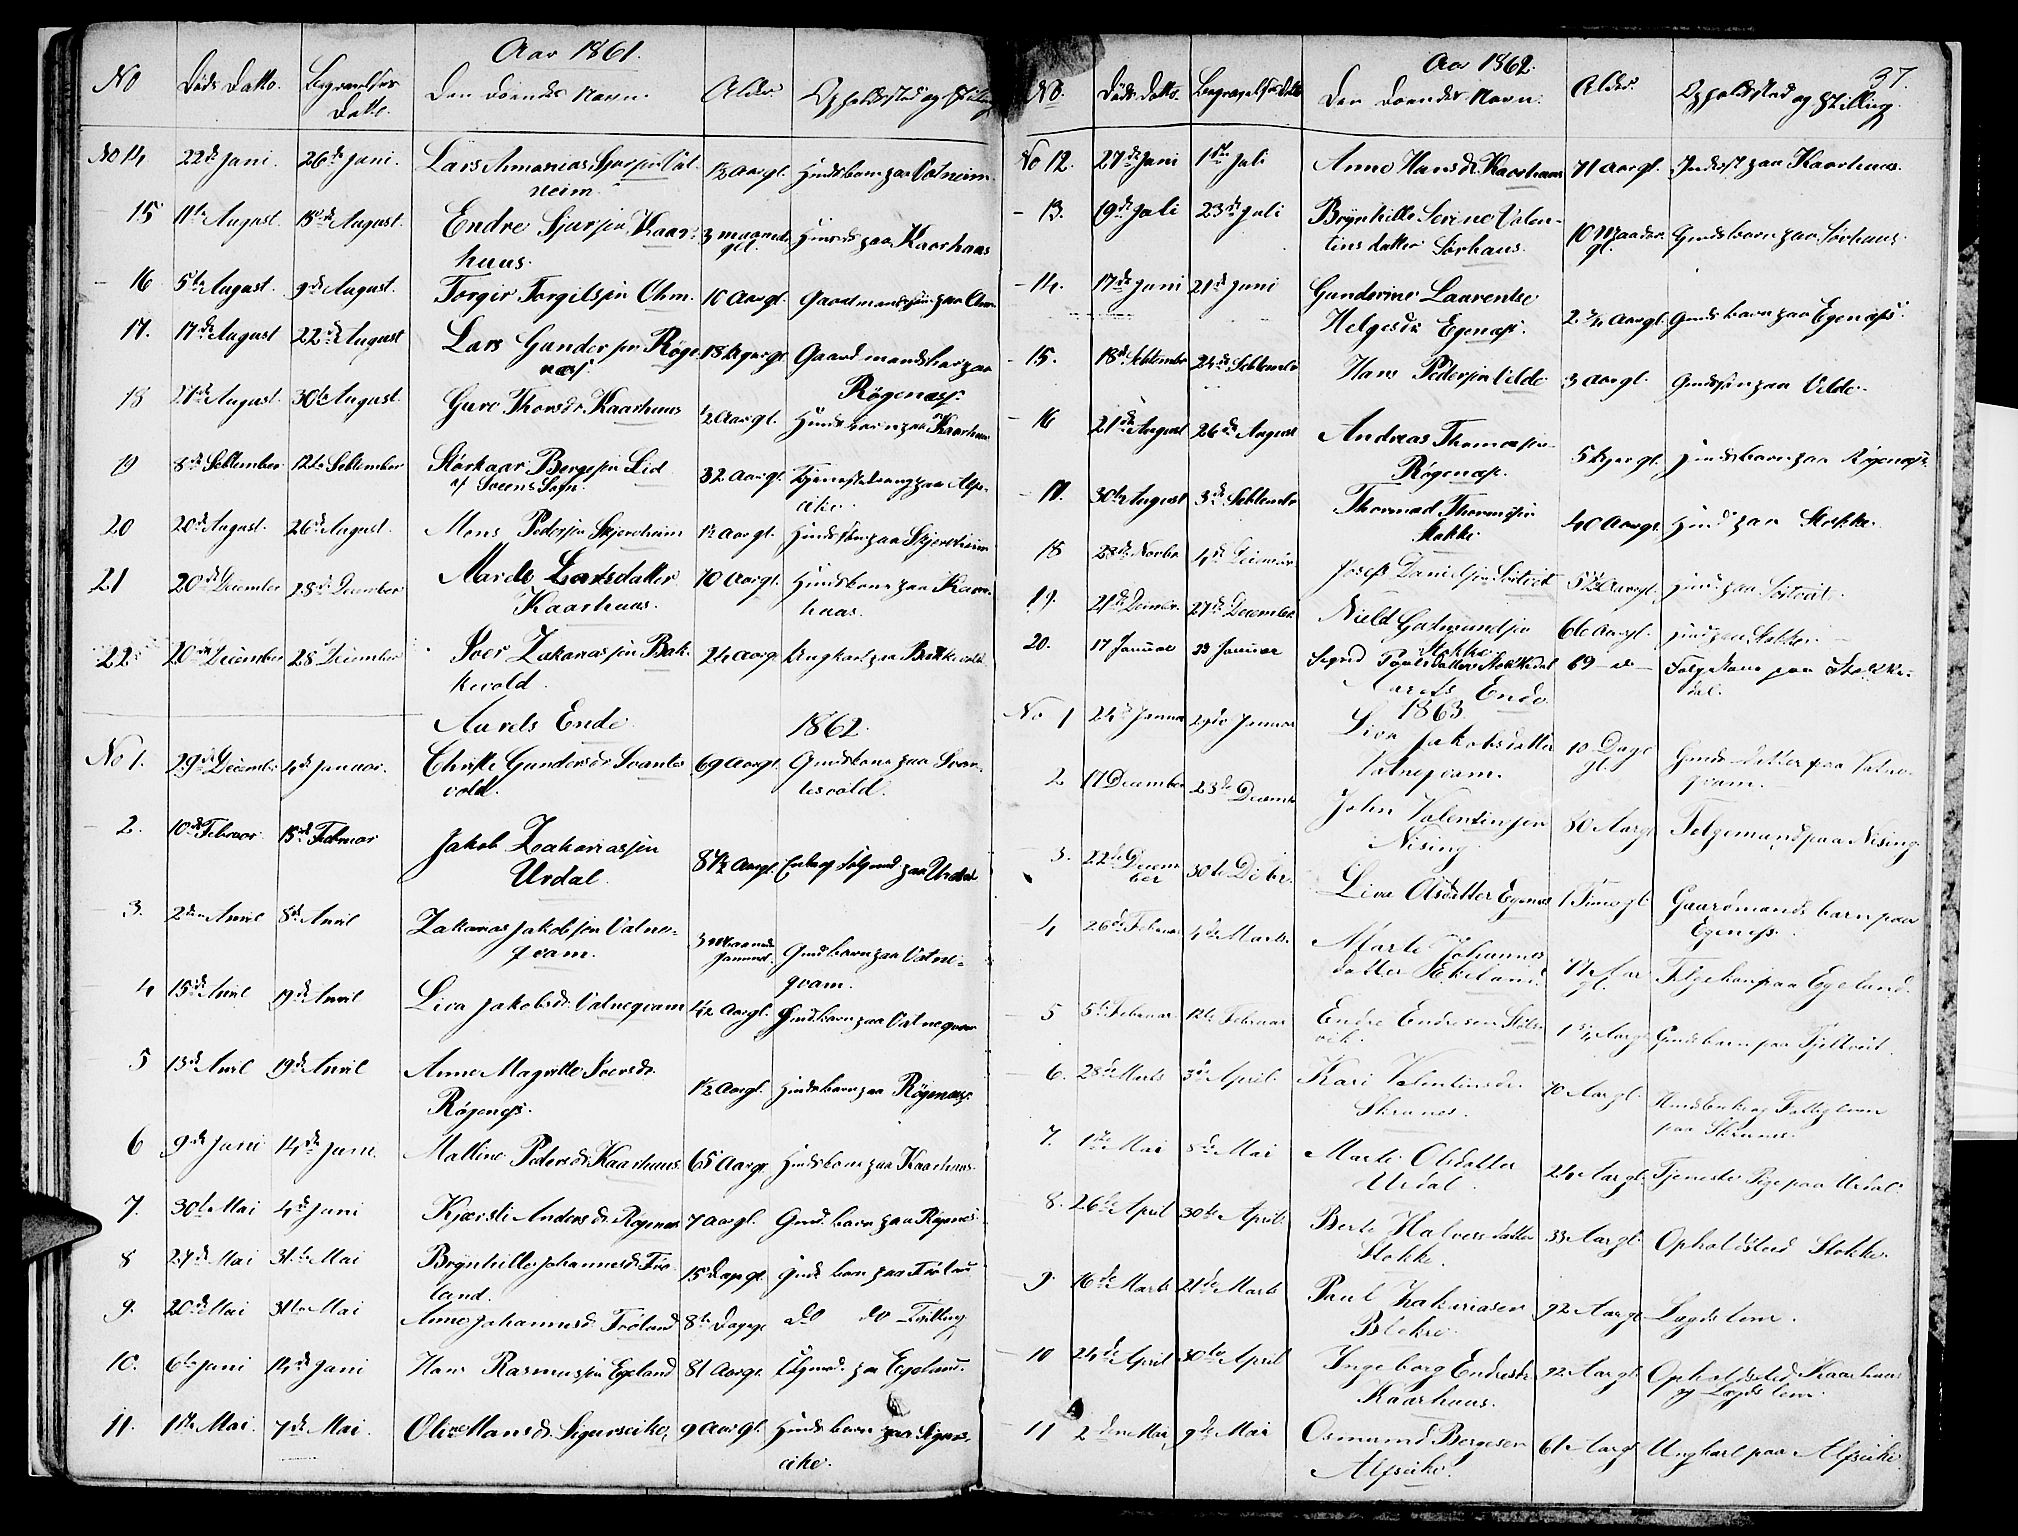 Aar 1861.
No Døds Datto. Begravelses Datto. Den Doendes Navn. Alder. Opholdsted og Stilling
No 14 22de Juni. 26de Juni. Lars Ananias Sjursen Vatneim. 1/2 Aargl. Husbarn paa Vatneim.
15 11te August. 15de August. Endre Sjursøn Kaarhuus. 3 maaneder gl. paa Kaarhuus
16 5te August. 9de August. Torgir Torgilsøn Ohm. 10 Aargl. Gaardmandssøn paa Ohm
17. 17de August 22de August Lars Gundersøn Røgenæs 18 Gaardmandsbarn paa Røgenæs
18 27de August. 30te August. Guro Thorsdr Kaarhuus 1/2 Aargl. Huusbarn paa Kaarhuus
19 8de Sebtember 12te Sebtember Størkaar Bergesøn Lid af Sveens Sogn. 32 Aargl. Tjenestedreng paa Alfseike.
20 20de August. 26de August. Mons Pedersøn Skjersheim 1 1/2 Aargl. Huussøn paa Skjersheim
21 20de December 28de December Marde Larsdatter Kaarhuus. 70 Aargl. Huuskone paa Kaarhuus.
22 20de December 28de December Iver Zakariassøn Bakkevold. 24 Aargl Ungkarl paa Bakkevold
Aarets Ende. 1862.
No 1. 29de December 4de Januar. Christe Gundersdr Svantesvold. 69 Aargl. Huuskone paa Svantesvold.
2. 10de Februar. 15de Februar Jakob Zakariassøn Urdal. 87 1/2 Aargl. paa Urdal
3. 2den April 8de April Zakarias Jakobsøn Vatneqvam. 3 Maaneder gammel. Gaardbarn paa Vatneqvam.
4 15de April 19de April Liva Jakobsdr Vatneqvam 4 1/2 Aargl. Gaardbarn paa Vatneqvam
5 13de April 19de April Anne Magrethe Iversdr. Røgenes. 1 1/2 Aargl. Huusbarn paa Røgenæs
6 9de Juni 14de Juni. Maline Pedersdr Kaarhuus. 65 Aargl Huuskone paa Kaarhuus.
7. 30te Mai 4de Juni Kjersti Andersdr Røgenes 7 Aargl. Gaard. barn paa Røgenes.
8 27de Mai 31te Mai Brynhille Johannesdr Føland. 15 Dage gl. Gaardbarn paa Føland
9. 20de Mai 31te Mai Anne Johannesdr Føland 8te Dage gl do do Tvilling
10. 6te Juni 14de Juni Hans Rasmussøn Egeland 81 Aargl. paa Egeland.
11. 1ste Mai. 7de Mai. Oline Hansdr Sigurseike, 9 Aargl. Huusbarn paa Sigurseike.
Aar 1862. 37.
No. Døds Datto. Begravelses Datto Den Doendes Navn. Alder. Opholdsted og Stilling.
No 12. 27de Juni 1ste Juli Anne Hansdr Kaarhuus 71 Aargl. Inderst paa Kaarhuus.
13. 19de Juli 23de Juli Brynhille Serine Valentinsdatter Sørhuus. 10 Maaneder gl. Gaardbarn paa Sørhuus.
14. 17de Juni 21de Juni Gunderine Laurentse Helgesdr Egenæs. 2 3/4 Aargl. Gaardsbarn paa Egenæs.
15. 18de Sebtember 24de Sebtember Hans Pedersøn Velde 3 Aargl. Gaardsøn paa Velde.
16 21de August 26de August Andreas Thomasøn Røgenæs. 5 gl. Huusbarn paa Røgenæs.
17. 30te August 3de Sebtember Thormod Thormodsøn Stokke 40 Aargl. Huus paa Stokke.
18 28de Novbr 4de December Josef Danielsøn Sørtveit 5 1/2 Aargl. Huus paa Sørtveit.
19. 21de December 27de December Nield Gudmundsøn Stokke 66 Aargl. paa Stokke.
20. 17 Januar 23 Januar Sigrid Poulsdatter Stokkedal 69 do Følgekone paa Stokkedal.
Aarets Ende
1863
No 1 24de Januar 29de Januar Liva Jakobsdatter Vatneqvam. 10 Dage gl. Gaardsdatter paa Vatneqvam.
2 17 December 23de December John Valentinsen Nising. 80 Aargl Følgemand paa Nising.
3. 22de December 30te Decbr. Liva Olsdatter Egenes 1 Time gl Gaardmands barn paa Egenes.
4 26de Februar 4de Marts Marte Johannesdatter Ekeland 77 Aar gl. Følgekone paa Egeland.
5 5te Februar 12te Februar Endre Endresen 1 3/4 Aargl Gaardsbarn paa Fjeldtveit.
6. 28de Marts 3de April. Kari Valentinsdr. Skranes. 70 Aargl. Huusenke og Fattiglem paa Skranes.
7. 1ste Mai 8de Mai Marte Olsdatter Urdal. 24 Aargl. Tjeneste Pige paa Urdal.
8. 26de April 30te April. Berte Halvorsdatter Stokke. 33 Aargl. Opholdsted Stokke.
9. 16de Marts 21de Marts Paul Zakariasen Blekre. 92 Aargl Lægdslem.
10 24de April 30te April Ingeborg Endresdr Kaarhuus. 92 Aargl. Opholdsted Kaarhuus og Lægdslem.
11 2den Mai 9de Mai Osmund Bergesen Alfseike. 61 Aargl Ungkarl paa Alfseike